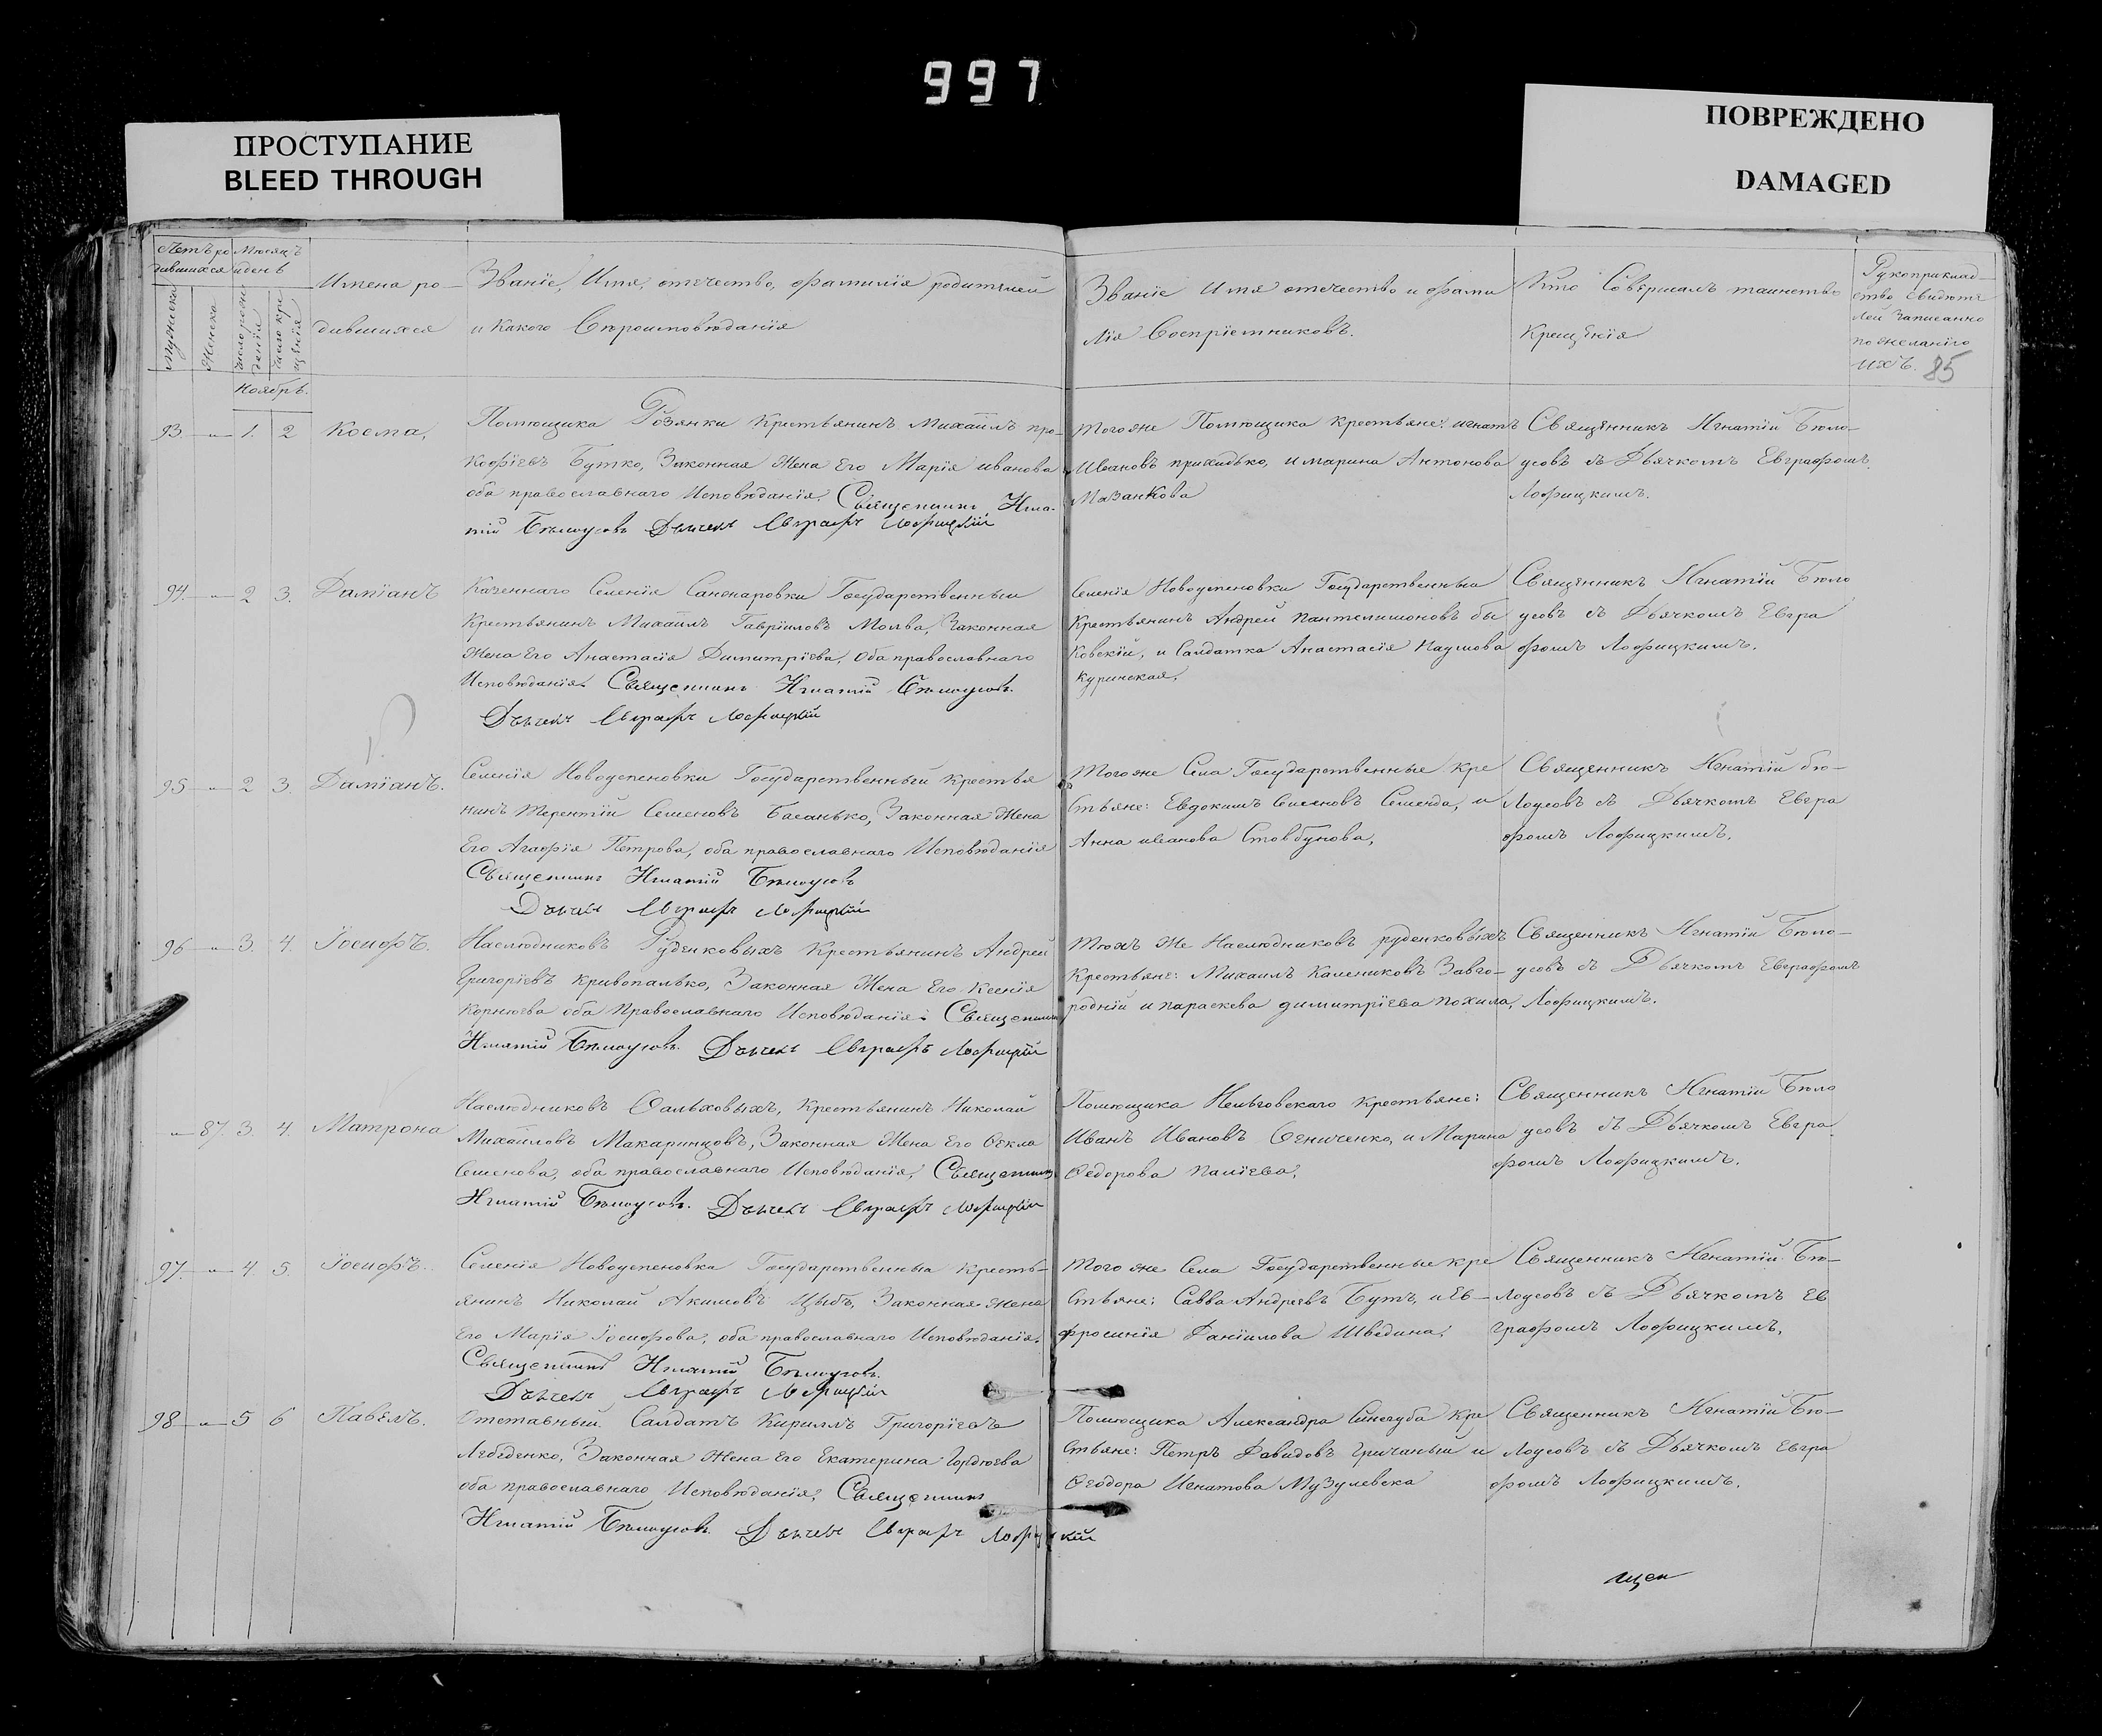 997
ПРОСТУПАНИЕ
BLEED THROUGH
ПОВРЕЖДЕНО
DAMAGED
Имена ро–
дившихся
Званіе, Имя, отечество, фамилія родителей
и Какого Вѣроисповѣданія
Званіе Имя отечество и фами
лія Воспріемниковъ.
Кто Совершалъ таинство
Крещенія
Рукоприклад–
ство свидѣте
лей записанно
по желанію
ихъ.
85
Мужеска
Женска
Число рож
денія
Число кре
щенія
Ноябрь.
93 1. 2 Косма,
Помѣщика Розянки Крестьянинъ Михаилъ про–
кофіевъ Бутко, Законная Жена Его Марія иванова
оба православнаго Исповѣданія. Священникъ Игна–
тій Бѣлоусовъ Дьячекъ Евграфъ Лофицкій
Тогоже Помѣщика Крестьяне: игнатъ
Ивановъ прихидько, и марина Антонова
Мазанкова
Священникъ Игнатій Бѣло–
усовъ съ Дьячкомъ Евграфомъ
Лофицкимъ.
94. 2 3. Даміанъ
Казеннаго Селенія Санжаровки Государственный
Крестьянинъ Михаилъ Гавріиловъ Молва, Законная
Жена Его Анастасія Димитріева, Оба православнаго
Исповѣданія. Священникъ Игнатій Бѣлоусовъ.
Дьячекъ Евграфъ Лофицкій
Селенія Новоуспеновки Государственный
Крестьянинъ Андрей Пантелимоновъ бы
ковскій, и Салдатка Анастасія Наумова
Куринская.
Священникъ Игнатій Бѣло
усовъ съ Дьячкомъ Евгра
фомъ Лофицкимъ.
95 2 3. Даміанъ.
Селенія Новоуспеновки Государственный крестья
нинъ Терентій Семеновъ Басанько, Законная Жена
Его Агафія Петрова, оба православнаго Исповѣданія
Священникъ Игнатій Бѣлоусовъ
Дьячекъ Евграфъ Лофицкій
Тогоже Села Государственные Кре
стьяне: Евдокимъ Семеновъ Семенда, и
Анна иванова Стовбунова,
Священникъ Игнатій бѣ–
лоусовъ съ Дьячкомъ Евгра
фомъ Лофицкимъ.
96 3. 4. Іосифъ.
Наслѣдниковъ Руденковыхъ Крестьянинъ Андрей
Григоріевъ Кривопалько, Законная Жена Его Ксенія
Корнѣева оба Православнаго Исповѣданія: Священникъ
Игнатій Бѣлоусовъ. Дьячекъ Евграфъ Лофицкій
Тѣхъ Же Наслѣдниковъ руденковыхъ
Крестьяне: Михаилъ Калениковъ Завго–
родній и параскева димитріева похила,
Священникъ Игнатій Бѣло–
усовъ съ Дьячкомъ Евграфомъ
Лофицкимъ.
87. 3. 4. Матрона
Наслѣдниковъ Сальховыхъ, Крестьянинъ Николай
Михайловъ Макаринцовъ, Законная Жена Его Ѳекла
Семенова, оба православнаго Исповѣданія, Священникъ
Игнатій Бѣлоусовъ. Дьячекъ Евграфъ Лофицкій
Помѣщика Крестьяне:
Иванъ Ивановъ Сениченко, и Марина
Ѳедорова Паліева,
Священникъ Игнатій Бѣло
усовъ съ Дьячкомъ Евгра
фомъ Лофицкимъ.
97. 4. 5. Іосифъ.
Селенія Новоуспеновка Государственныи кресть–
янинъ Николай Акимовъ Цыбъ, Законная Жена
Его Марія Іосифова, оба православнаго Исповѣданія.
Священникъ Игнатій Бѣлоусовъ.
Дьячекъ Евграфъ Лофицкій
Того же Села Государственные кре
стьяне: Савва Андреевъ Бутъ, и Ев–
фросинія Даніилова Шведина.
Священникъ Игнатій Бѣ–
лоусовъ съ Дьячкомъ Ев
графомъ Лофицкимъ.
98 5 6 Павелъ.
Отставный Салдатъ Кириллъ Григоріевъ
Лебеденко, Законная Жена Его Екатерина Гордѣева
оба православнаго Исповѣданія, Священникъ
Игнатій Бѣлоусовъ. Дьячекъ Евграфъ Лофицкій
Помѣщика Александра Синегуба Кре
стьяне: Петръ Давидовъ Гричаный и
Ѳеодора Игнатова Музулевска
Священникъ Игнатій Бѣ–
лоусовъ съ Дьячкомъ Евгра
фомъ Лофицкимъ.